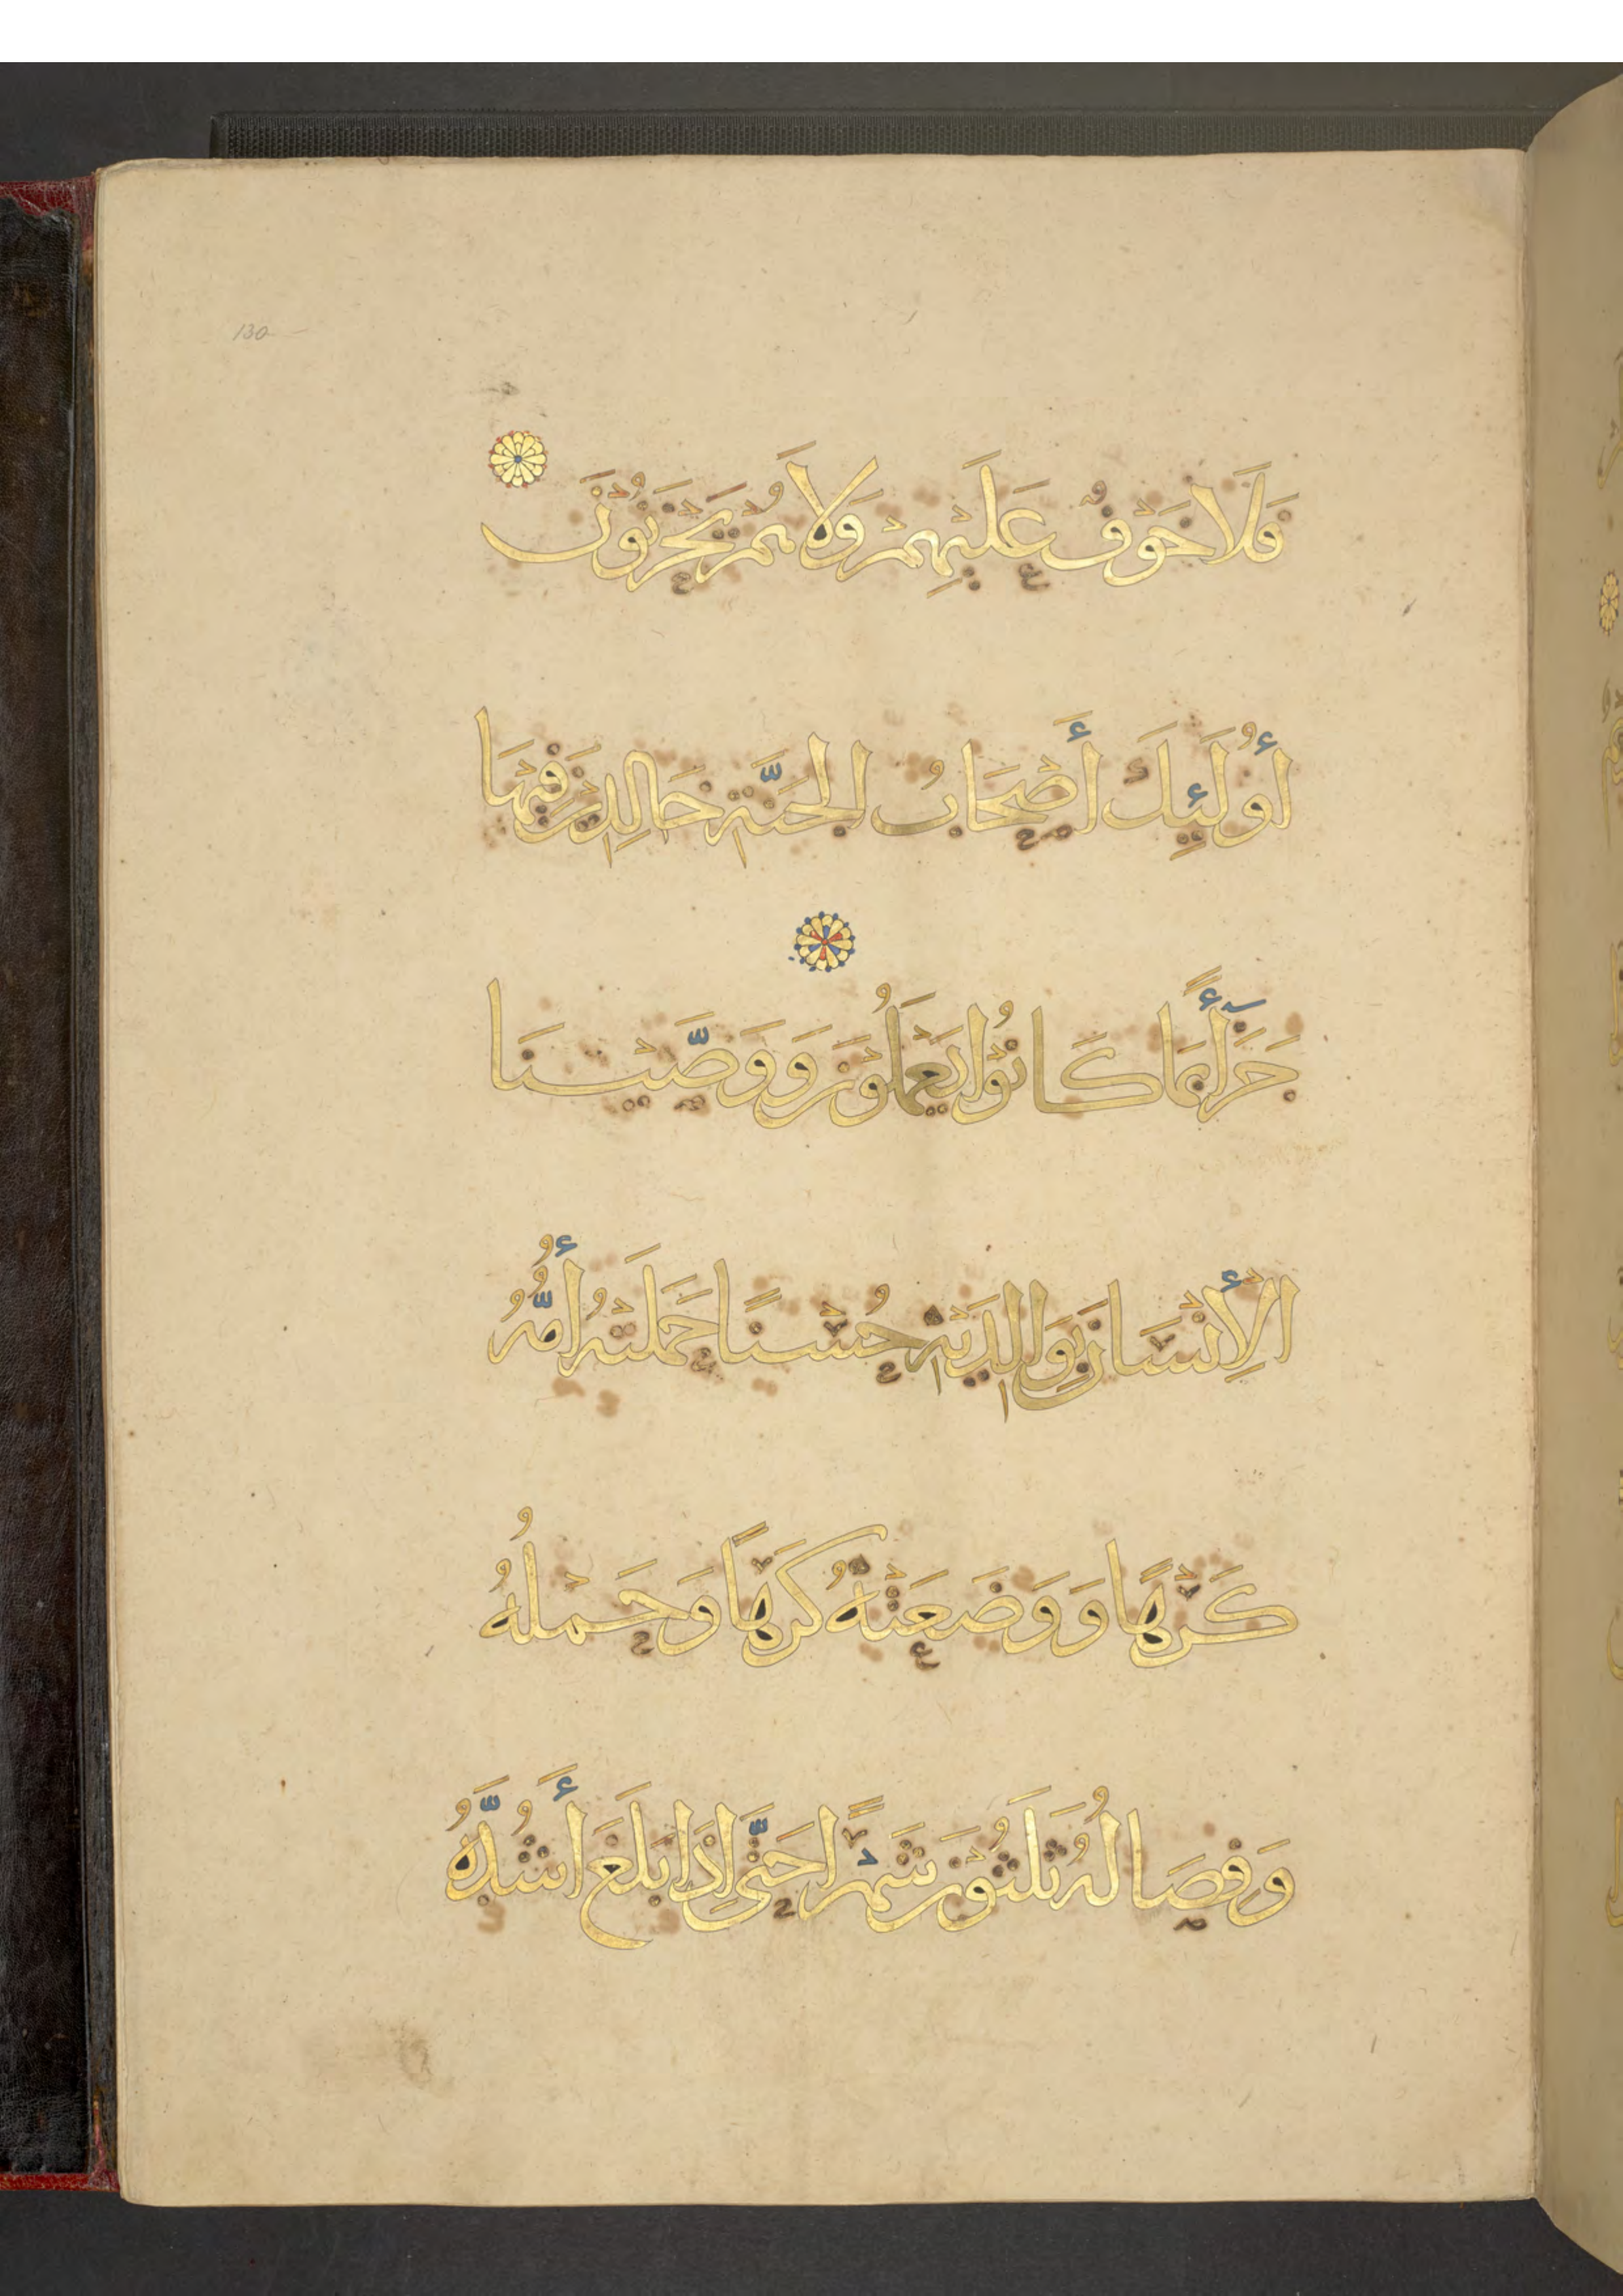 130
فَلَا خَوْفٌ عَلَيْهِمْ وَلَا هُمْ يَحْزَنُونَ
أُولَئِكَ أَصْحَابُ الْجَنَّةِ خَالِدِينَ فِيهَا
جَزَآءً بِمَا كَانُوا يَعْمَلُونَ وَوَصَّيْنَا
الْإِنْسَانَ بِوَالِدَيْهِ حُسْنًا حَمَلَتْهُ أُمُّهُ
كَرْهًا وَوَضَعَتْهُ كَرْهًا وَحَمْلُهُ
وَفِصَالُهُ ثَلَثُونَ شَهْرًا حَتَّى إِذَا بَلَغَ أَشُدَّهُ